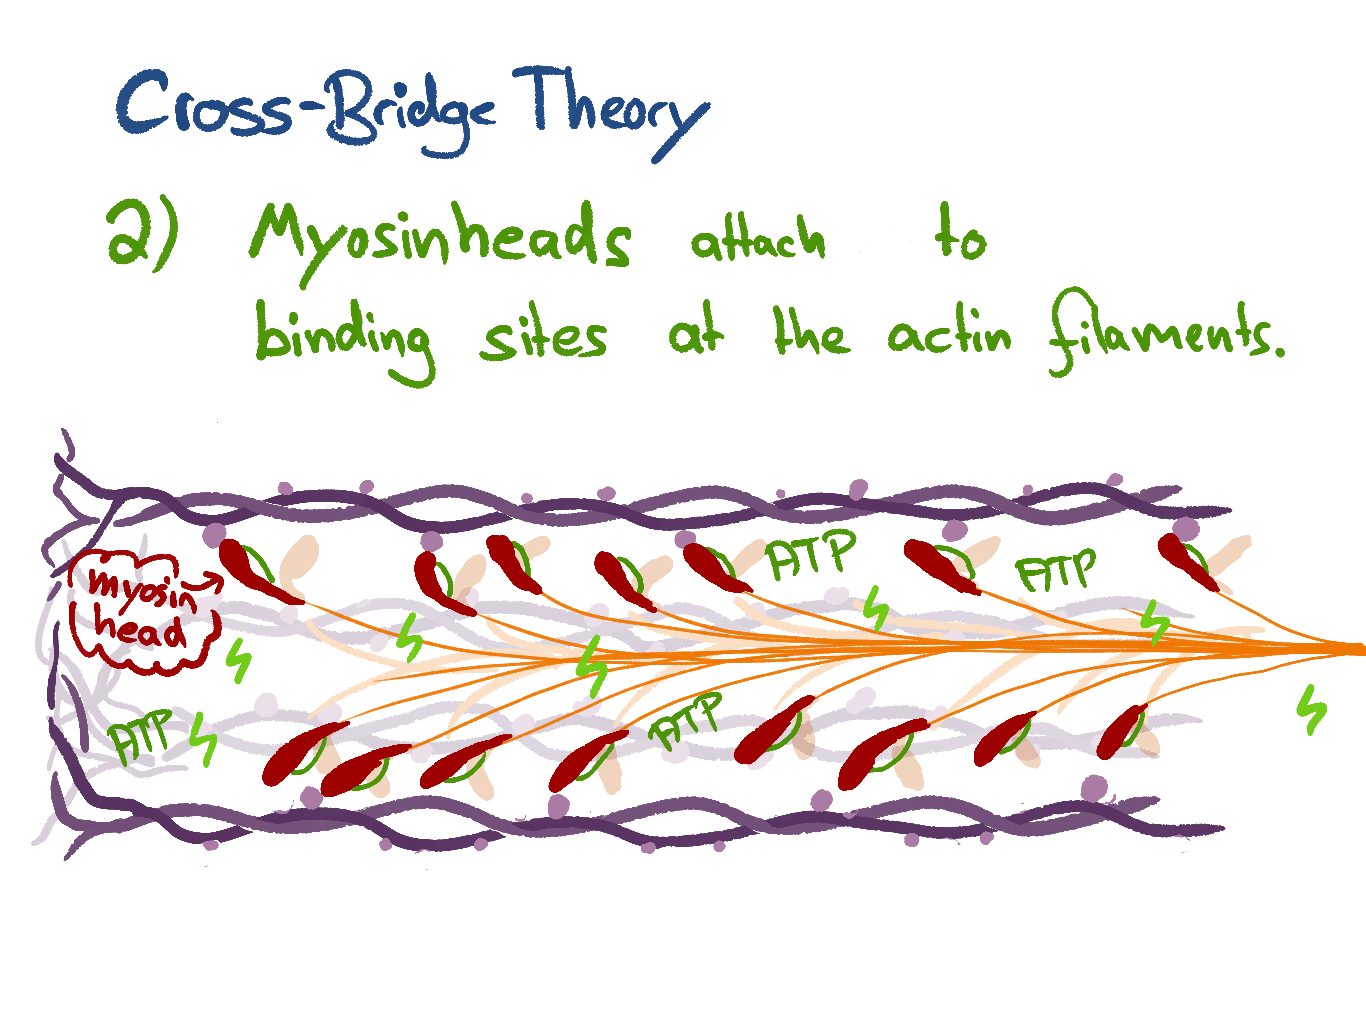 Cross-Bridge Theory
2) Myosinheads attach to
binding sites at the actin filaments.
ATP
ATP
myosin
head
ATP
ATP